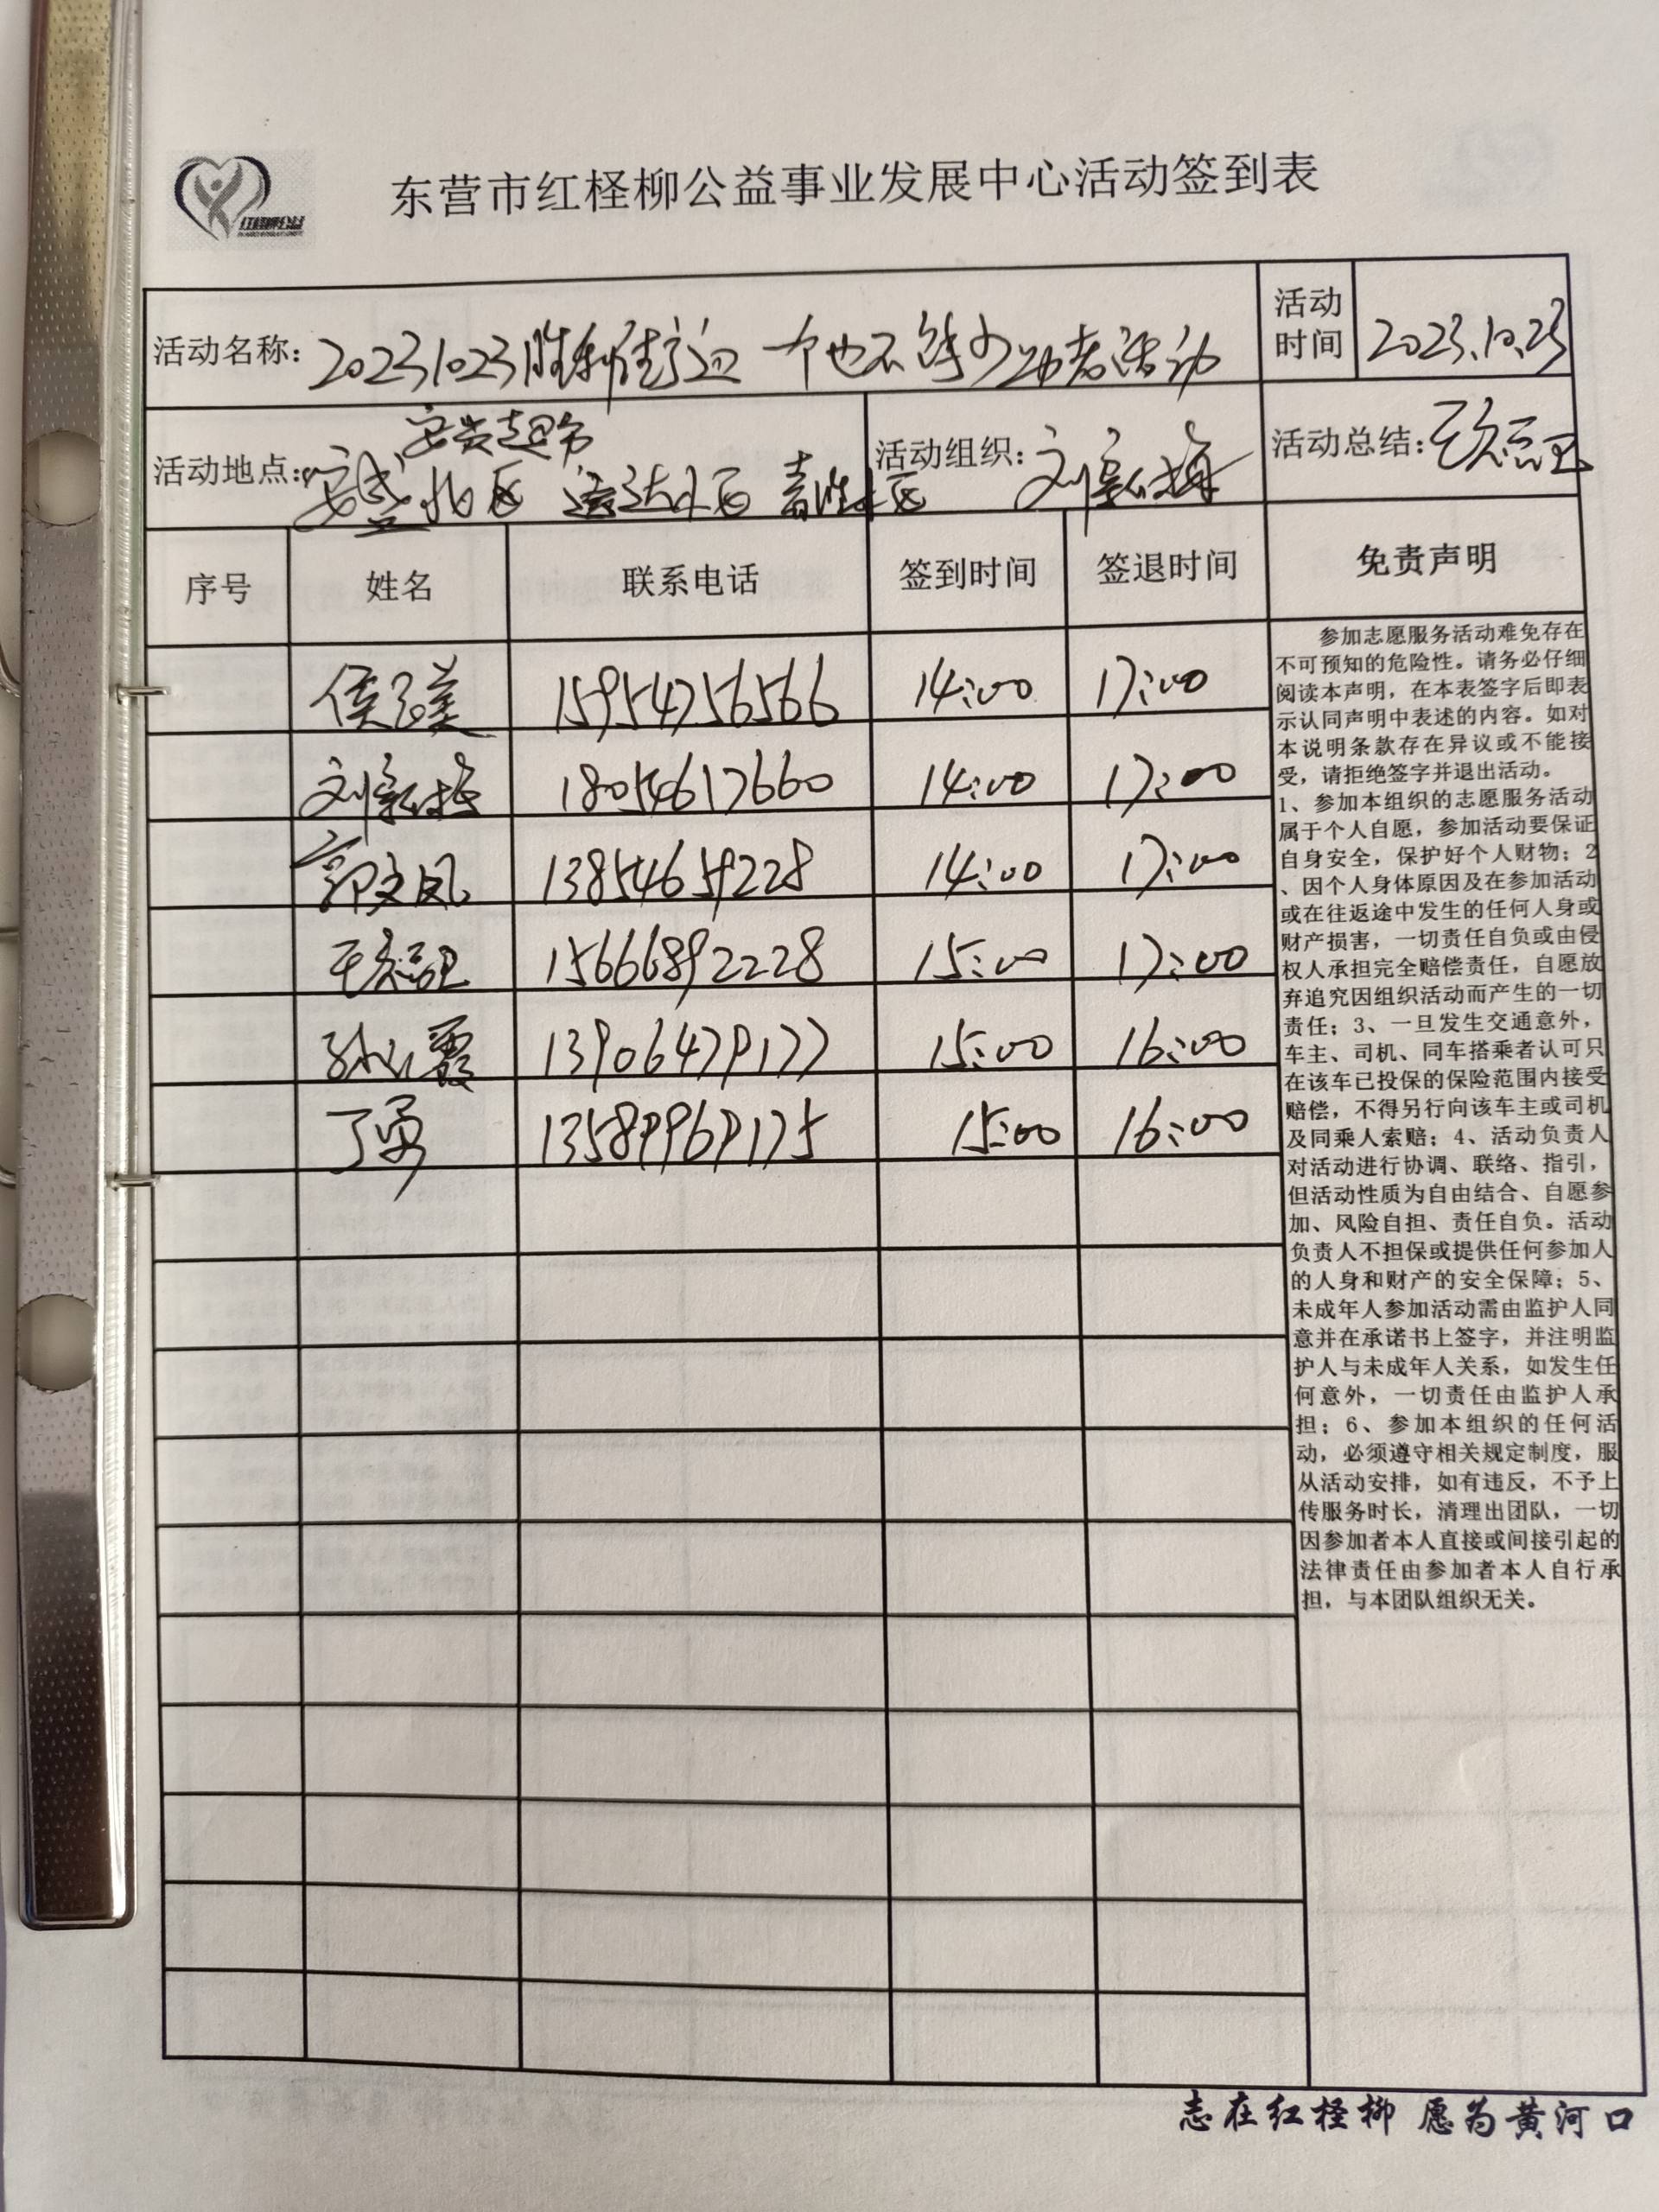 红柽柳公益
东营市红柽柳公益事业发展中心活动签到表
活动名称：20231023胜利街道 一个也不能少 助老活动
活动时间 2023.10.23
安贵超市
活动地点：安盛北区 远达小区
活动组织：刘新梅
活动总结：
序号 姓名 联系电话 签到时间 签退时间 免责声明
侯 美 15954756566 14:00 17:00
刘新梅 18054617660 14:00 17:00
郭文凤 13854659228 14:00 17:00
15666892228 15:00 17:00
孙 霞 13906479177 15:00 16:00
丁勇 13589969175 15:00 16:00
参加志愿服务活动难免存在
不可预知的危险性。请务必仔细
阅读本声明，在本表签字后即表
示认同声明中表述的内容。如对
本说明条款存在异议或不能接
受，请拒绝签字并退出活动。
1、参加本组织的志愿服务活动
属于个人自愿，参加活动要保证
自身安全，保护好个人财物；2
、因个人身体原因及在参加活动
或在往返途中发生的任何人身或
财产损害，一切责任自负或由侵
权人承担完全赔偿责任，自愿放
弃追究因组织活动而产生的一切
责任；3、一旦发生交通意外，
车主、司机、同车搭乘者认可只
在该车已投保的保险范围内接受
赔偿，不得另行向该车主或司机
及同乘人索赔；4、活动负责人
对活动进行协调、联络、指引，
但活动性质为自由结合、自愿参
加、风险自担、责任自负。活动
负责人不担保或提供任何参加人
的人身和财产的安全保障；5、
未成年人参加活动需由监护人同
意并在承诺书上签字，并注明监
护人与未成年人关系，如发生任
何意外，一切责任由监护人承
担；6、参加本组织的任何活
动，必须遵守相关规定制度，服
从活动安排，如有违反，不予上
传服务时长，清理出团队，一切
因参加者本人直接或间接引起的
法律责任由参加者本人自行承
担，与本团队组织无关。
志在红柽柳 愿为黄河口